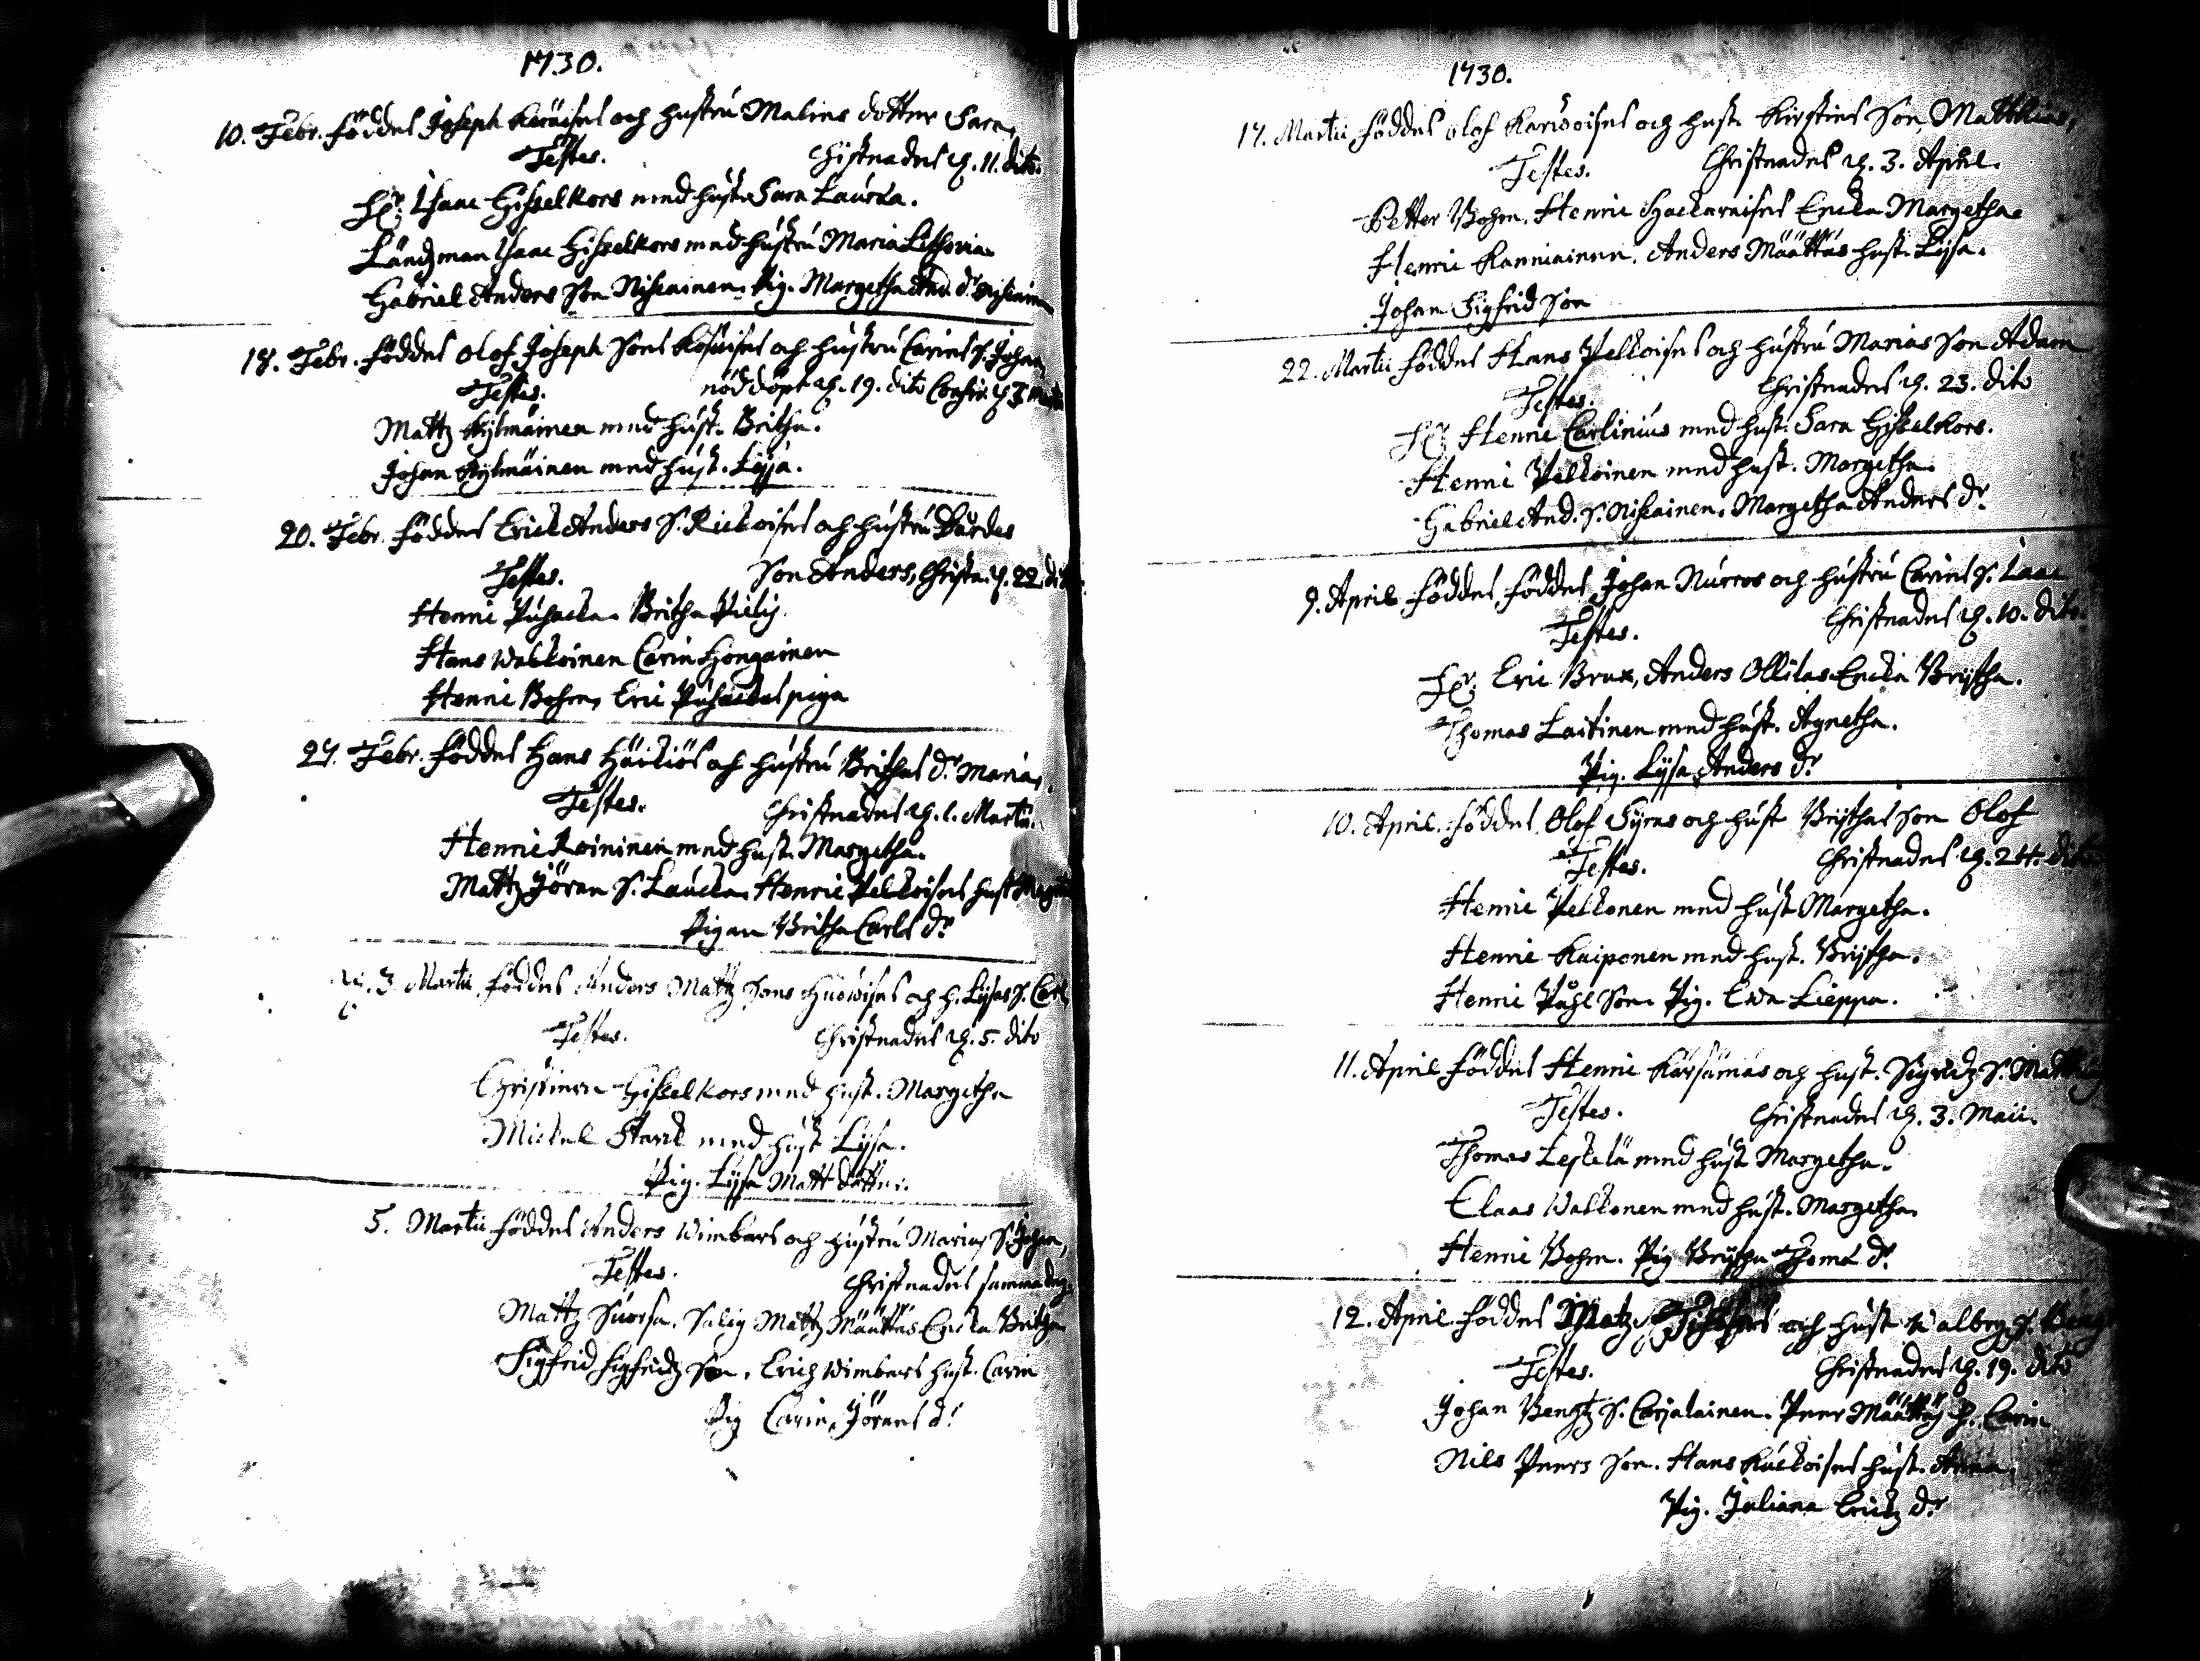 1730.
10. Febr. föddes Joseph Keräises och hustru Malins dotter Sara,
Testes. Christnades d. 11. dito.
Hr. Isaac Hisselkors med hust. Sara Laurea.
Ländzman Isaac Hisselkors med hustru Maria Lithovia
Gabriel Anders Son Niskainen. Pig. Margetha And. dr Niskain
18. Febr. föddes Olof Joseph Sons och hustru Carins S. Johan
Testes. nöddöpt d. 19. dito Confir. d. 3
Mattz Kylmäinen med hust. Britha.
Johan Kylmäinen med hust. Lijsa.
20. Febr. föddes Erick Anders S. och hustru
Testes. Son Anders, Christn. d. 22 dit
Henric Puhacka. Britha
Hans Walkoinen Carin
Henric Bohm, Eric Puhackas piga
27. Febr. föddes Hans och hustru Brithas dr Maria,
Testes. Christnades d. 1. Martii.
Henric Roininen med hust. Margetha.
Mattz Jöran S. Henric Pelkoises hust
Pigan Britha Carls dr
3 Martii föddes Anders Mattz Sons och h. Lijsas S. Carl
Testes. Christnades d. 5. dito
Christiern Hisselkors med hust. Margetha
Mickel Starck med hust Lijsa.
Pig. Lijsa Matt dotter.
5. Martii föddes Anders Wimbars och hustru Marias S. Johan,
Testes. Christnades samma dag.
Mattz Suorsa. Salig Mattz Määttäs Encka Britha
Sigfrid Sigfridz Son. Erich Wimbars hust. Carin
Pig Carin Jörans d.
1730.
17. Martii föddes Olof Karwoises och hust. Kirstins Son Matthias,
Testes. Christnades d. 3. April.
Petter Bohm. Henric Hackaraises Encka Margetha
Henric Kanniainen. Anders Määttäs hust. Lijsa.
Johan Sigfrid Son
22. Martii föddes Hans Pelkoises och hustru Marias Son Adam
Testes. Christnades d. 23. dito
Hr Henric Carlinius med hust. Sara Hisselkors.
Henric Pelkoinen med hust. Margetha.
Gabriel And. S. Niskainen. Margetha Anders dr
9. April föddes föddes Johan Nurros och hustru Carins S. Isaac
Testes. Christnades d. 10. dito.
Hr. Eric Brux, Anders Ollilas Encka Brijtha.
Thomas Laitinen med hust. Agnetha.
Pig. Lijsa Anders dr
10. April. föddes Olof Syras och hust Brijthas Son Olof
Testes. Christnades d. 24. dito
Henric Pelkonen med hust Margetha.
Henric Kaiponen med hust. Brijtha.
Henric Påhl Son. Pig. Ewa Lieppa.
11. April föddes Henric Karsämäs och hust. Sigridz S. Matthias
Testes. Christnades d. 3. Maii.
Thomas Leskelä med hust Margetha.
Claas Walkonen med hust. Margetha.
Henric Bohm. Pig Brijtha Thoms dr
12. April föddes Matz och hust Walborg S. Bengt
Testes. Christnades d. 19. dito
Johan Bengtz S. Carjalainen. Peer Määttäs h. Carin
Nils Peers Son. Hans hust. Anna.
Pig. Juliana Erickz dr